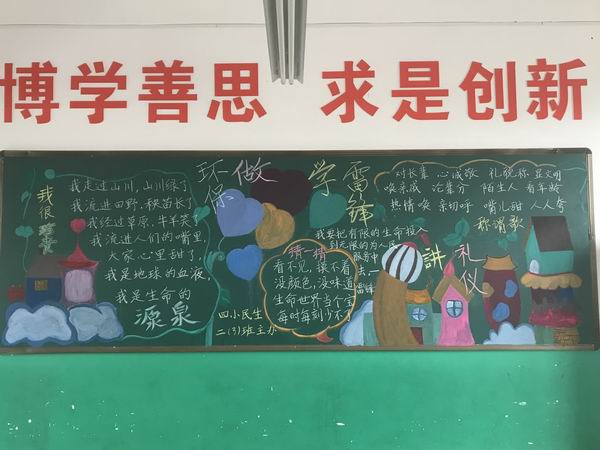 博学善思 求是创新
我很珍贵
我走过山川，山川绿了
我流进田野，秧苗长了
我经过草原，牛羊笑了
我流进人们的嘴里，
大家心里甜了，
我是地球的血液，
我是生命的
源泉
环保
做
学雷锋
我要把有限的生命投入
到无限的为人民
服务中
去
雷锋
猜一猜
看不见，摸不着
没颜色，没味道
生命世界当个宝
每时每刻少不了
四.小民生
二(3)班主办
讲
礼仪
对长辈 心诚敬 礼貌称 显文明
唤亲戚 论辈分 陌生人 看年龄
热情唤 亲切呼 嘴儿甜 人人夸
称谓歌